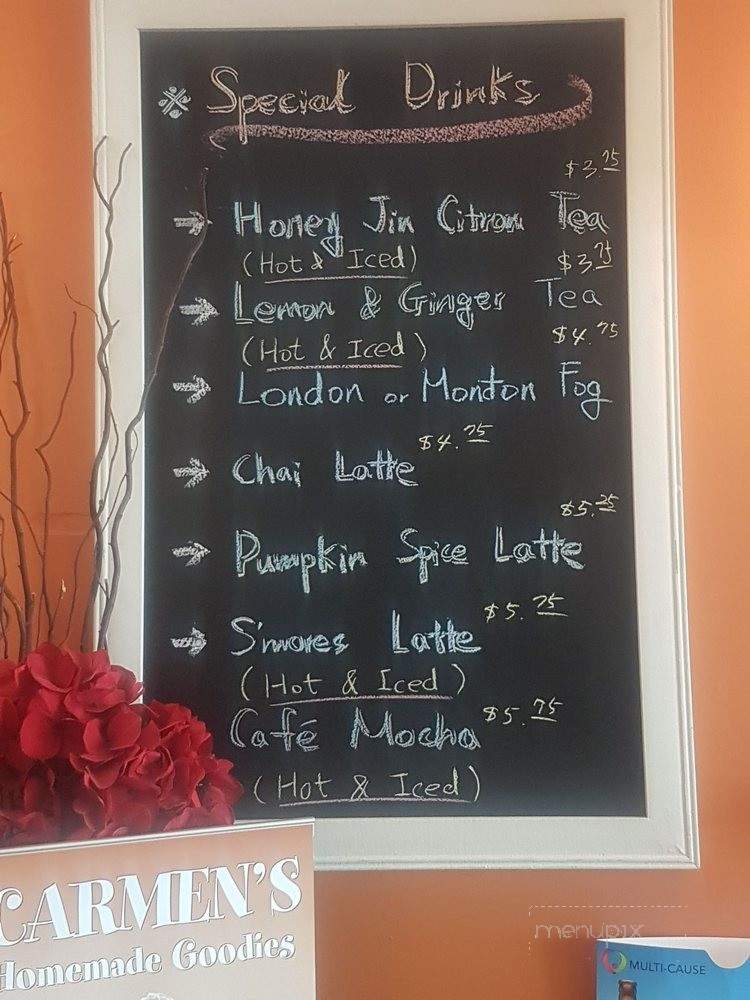 ※ Special Drinks
$3.75
→ Honey Jin Citron Tea
(Hot & Iced)
$3.75
→ Lemon & Ginger Tea
(Hot & Iced)
$4.75
→ London or Monton Fog
$4.75
→ Chai Latte
$5.25
→ Pumpkin Spice Latte
→ S'mores Latte $5.75
(Hot & Iced)
Café Mocha $5.75
(Hot & Iced)
CARMEN'S
Homemade Goodies
menupix
MULTI-CAUSE